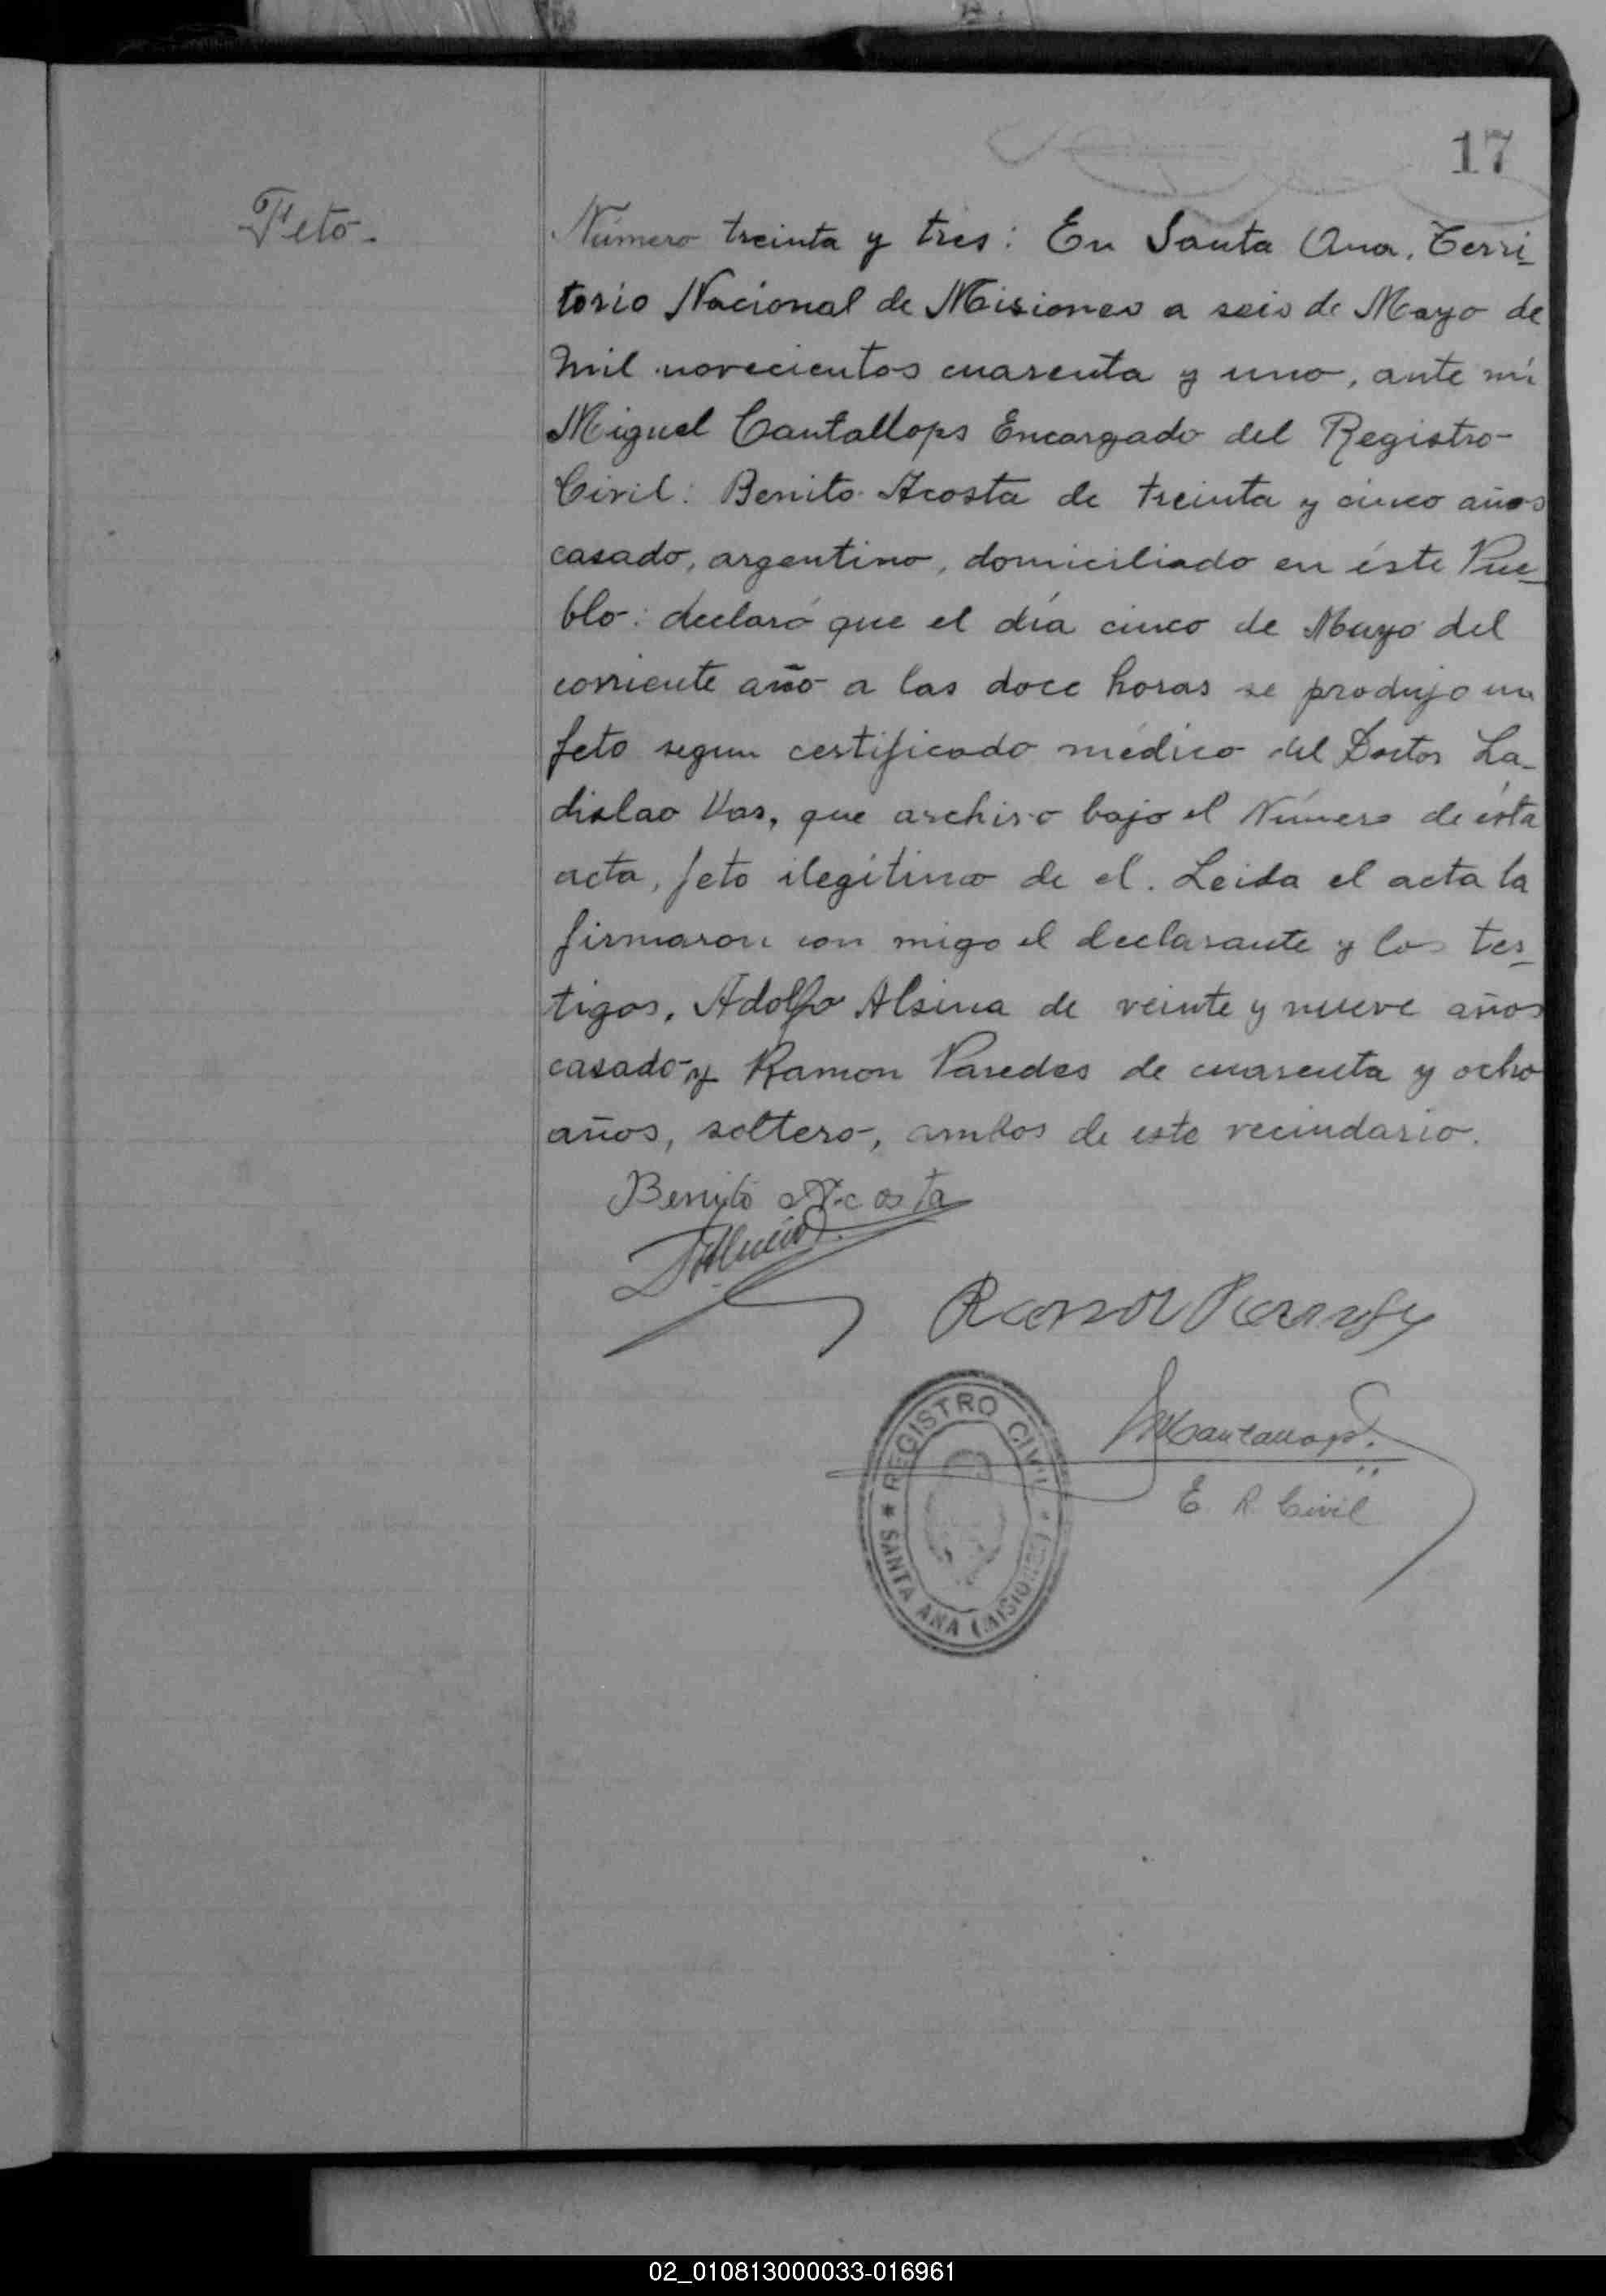 17
Feto.
Número treinta y tres: En Santa Ana, Terri_
torio Nacional de Misiones a seis de Mayo de
mil novecientos cuarenta y uno, ante mí
Miguel Cantallops Encargado del Registro
Civil: Benito Acosta de treinta y cinco años
casado, argentino, domiciliado en éste Pue_
blo: declaró que el día cinco de Mayo del
corriente año a las doce horas se produjo un
feto segun certificado médico del Doctor La_
dislao Vas, que archivo bajo el Número de ésta
acta, feto ilegítimo de el. Leida el acta la
firmaron con migo el declarante y los tes_
tigos, Adolfo Alsina de veinte y nueve años
casado y Ramon Paredes de cuarenta y ocho
años, soltero, ambos de este vecindario.
Benito Acosta
REGISTRO CIVIL
* SANTA ANA (MISIONES) *
E. R. Civil
02_010813000033-016961